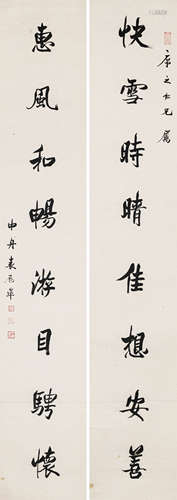 康之仁兄屬
快雪時晴佳想安善
惠風和暢游目騁懷
中舟袁勵準